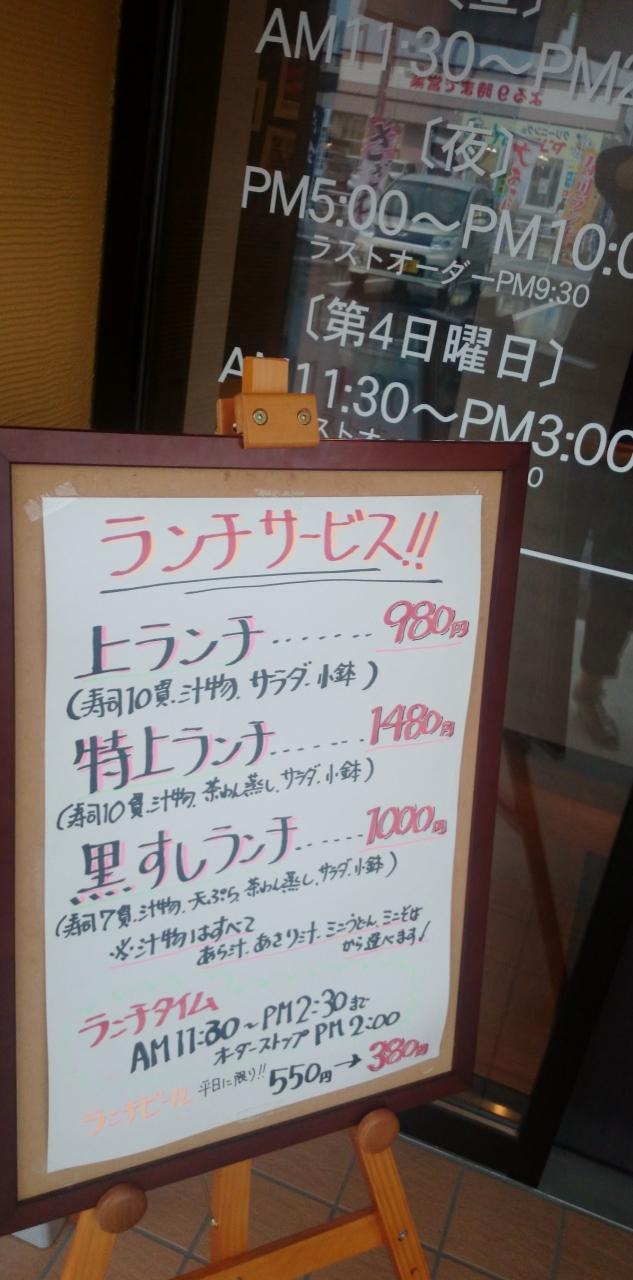 AM11:30～PM2
よる9時まで営業
〔夜〕
PM5:00～PM10:0
ラストオーダーPM9:30
〔第4日曜日〕
11:30～PM3:00
ランチサービス!!
上ランチ……… 980円
(寿司10貫、汁物、サラダ、小鉢)
特上ランチ……… 1480円
(寿司10貫、汁物、茶わん蒸し、サラダ、小鉢)
黒すしランチ…… 1000円
(寿司7貫、汁物、天ぷら、茶わん蒸し、サラダ、小鉢)
※汁物はすべて
あら汁、あさり汁、ミニうどん、ミニそば
から選べます!
ランチタイム
AM11:30～PM2:30まで
オーダーストップPM2:00
ランチビール 平日に限り!! 550円→380円